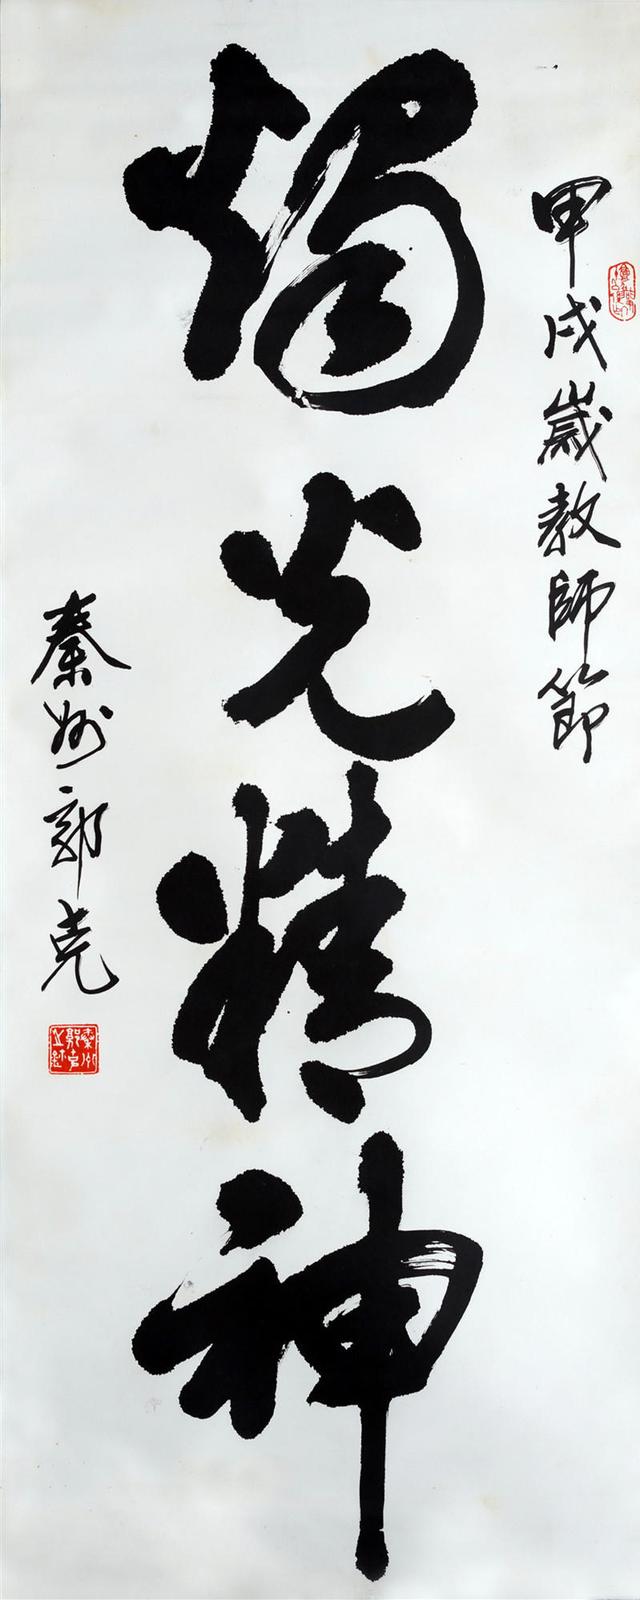 甲戌歲教師節
燭光精神
秦州郭克